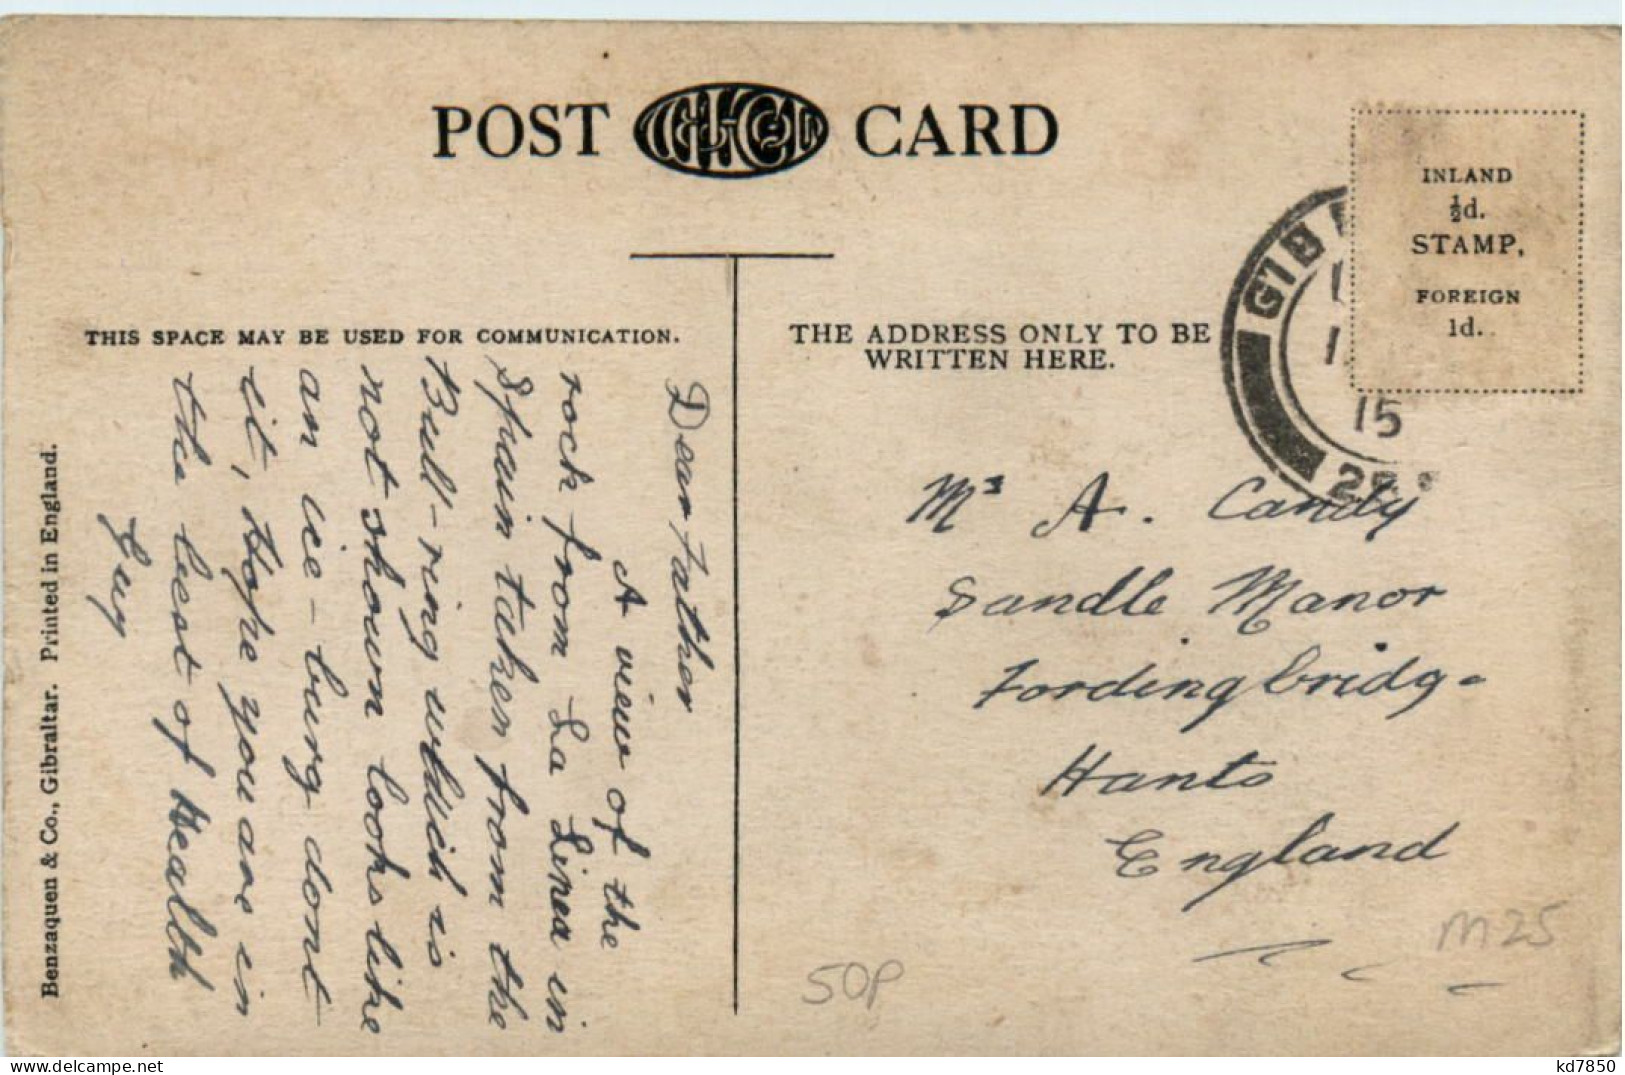 POST CARD
INLAND
½d.
STAMP.
FOREIGN
1d.
GIB
15
THIS SPACE MAY BE USED FOR COMMUNICATION.
THE ADDRESS ONLY TO BE
WRITTEN HERE.
Dear Father
A view of the
rock from La Linea in
Spain taken from the
Bull-ring which is
not shown looks like
an ice-burg dont
it, Hope you are in
the best of Health
Guy
Mr A. Candy
Sandle Manor
Fordingbridge
Hants
England
50P
M25
Benzaquen & Co., Gibraltar. Printed in England.
kd7850